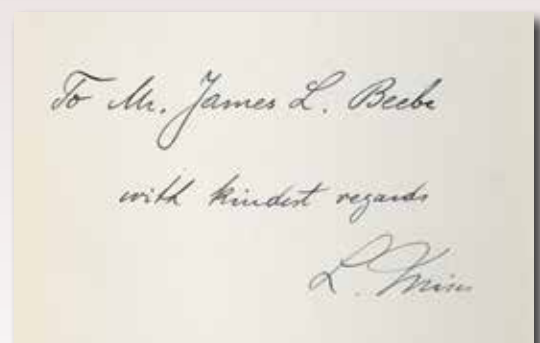 To Mr. James L. Beebe
with kindest regards
L. Mises